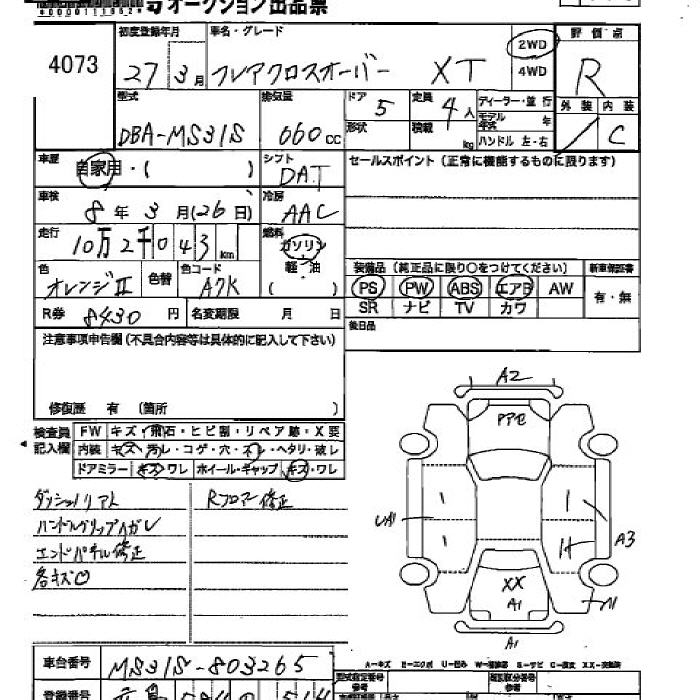 オークション出品票
4073
初度登録年月 車名・グレード 評価点
27 3月 フレアクロスオーバー XT 2WD 4WD R
型式 排気量 ドア 5 定員 4人 ディーラー・並行 外装 内装
DBA-MS31S 660cc 形状 積載 kg モデル年式 年 ハンドル 左・右 / C
車歴 自家用・( ) シフト DAT セールスポイント (正常に機能するものに限ります)
車検 8年3月(26日) 冷房 AAC
走行 10万2千043km 燃料 ガソリン 軽・油 ( )
色 オレンジII 色替 色コード A7K
装備品 (純正品に限り○をつけてください) 新車保証書
PS PW ABS エアB AW 有・無
SR ナビ TV カワ
R券 8430円 名変期限 月 日 後日品
注意事項申告欄 (不具合内容等は具体的に記入して下さい)
修復歴 有 (箇所 )
検査員記入欄 FW キズ・飛石・ヒビ割・リペア跡・X要
内装 キズ・汚レ・コゲ・穴・スレ・ヘタリ・破レ
ドアミラー キズ・ワレ ホイール・キャップ キズ・ワレ
ハンドルグリップハガレ
エンドパネル修正
各キズ
修正
A2
UA1
A3
XX
A1
A1
A-キズ E-エクボ U-凹ミ W-
車台番号 MS31S-803265
登録番号